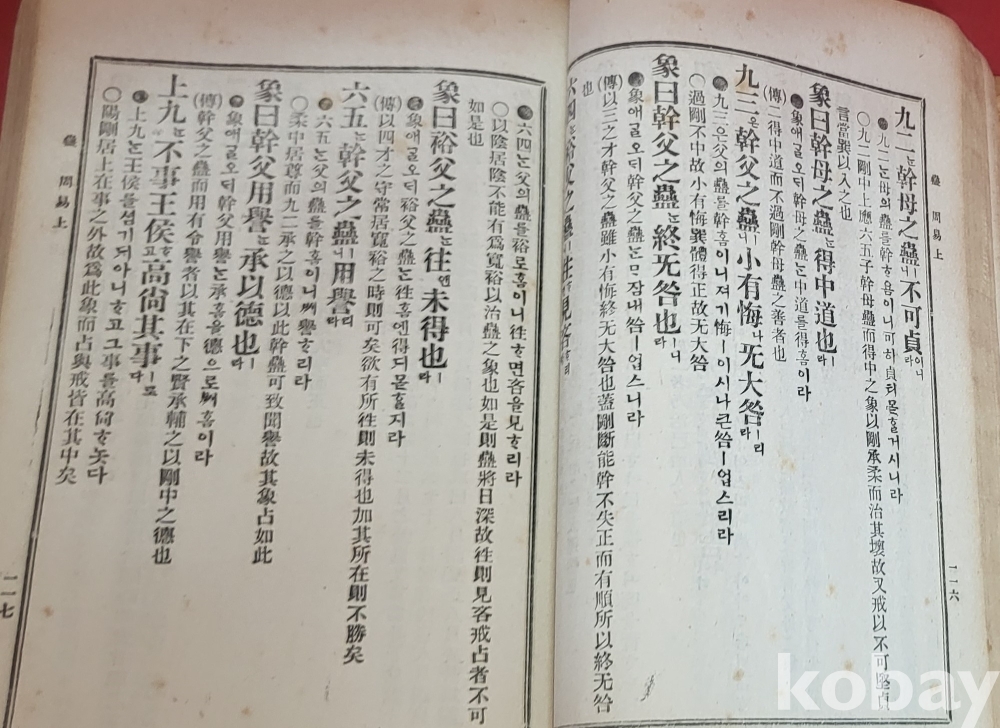 蠱 周易上 一一六
九二는幹母之蠱니不可貞이니라
●九二는母의蠱를幹홈이니可히貞티몯홀거시니라
○九二剛中上應六五子幹母蠱而得中之象以剛承柔而治其壞故又戒以不可堅貞
言當巽以入之也
象曰幹母之蠱는得中道也ㅣ라
●象애ᄀᆞᆯ오ᄃᆡ幹母之蠱는中道를得홈이라
(傳)二得中道而不過剛幹母蠱之善者也
九三은幹父之蠱니小有悔나无大咎ㅣ리라
●九三은父의蠱를幹홈이니져기悔ㅣ이시나큰咎ㅣ업스리라
○過剛不中故小有悔巽體得正故无大咎
象曰幹父之蠱는終无咎也ㅣ니라
●象애ᄀᆞᆯ오ᄃᆡ幹父之蠱는ᄆᆞᄎᆞᆷ내咎ㅣ업스니라
(傳)以三之才幹父之蠱雖小有悔終无大咎也蓋剛斷能幹不失正而有順所以終无咎
也
六四는裕父之蠱ㅣ니往ᄒᆞ면見吝ᄒᆞ리라
●六四는父의蠱를裕로홈이니往ᄒᆞ면吝을見ᄒᆞ리라
○以陰居陰不能有爲寬裕以治蠱之象也如是則蠱將日深故往則見吝戒占者不可
如是也
象曰裕父之蠱는往앤未得也ㅣ라
●象애ᄀᆞᆯ오ᄃᆡ裕父之蠱는往홈엔得디몯ᄒᆞᆯ지라
(傳)以四才之守常居寬裕之時則可矣欲有所往則未得也加其所在則不勝矣
六五는幹父之蠱니用譽리라
●六五는父의蠱를幹홈이니ᄡᅥ譽ᄒᆞ리라
○柔中居尊而九二承之以德以此幹蠱可致聞譽故其象占如此
象曰幹父用譽는承以德也ㅣ라
●象애ᄀᆞᆯ오ᄃᆡ幹父用譽는承홈을德으로ᄡᅥ홈이라
(傳)幹父之蠱而用有令譽者以其在下之賢承輔之以剛中之德也
上九는不事王侯ᄒᆞ고高尙其事ㅣ로다
●上九는王侯를셤기디아니ᄒᆞ고그事를高尙ᄒᆞ놋다
○陽剛居上在事之外故爲此象而占與戒皆在其中矣
蠱 周易上 一一七
kobay